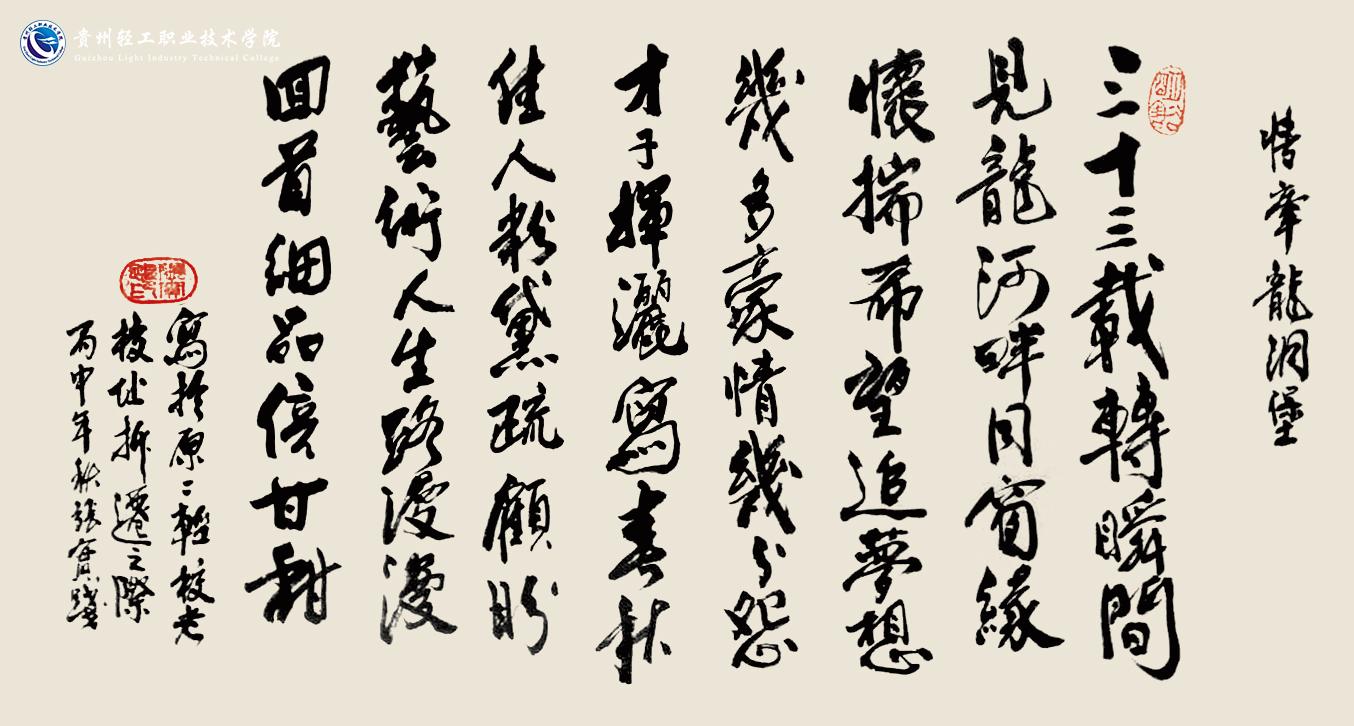 贵州轻工职业技术学院
Guizhou Light Industry Technical College
情牽龍洞堡
三十三載轉瞬間
見龍河畔同窗緣
懷揣希望追夢想
幾多豪情幾分怨
才子揮灑寫春秋
佳人粉黛疏顧盼
藝術人生路漫漫
回首細品倍甘甜
寫於原二輕校老
校址拆遷之際
丙申年秋張實踐